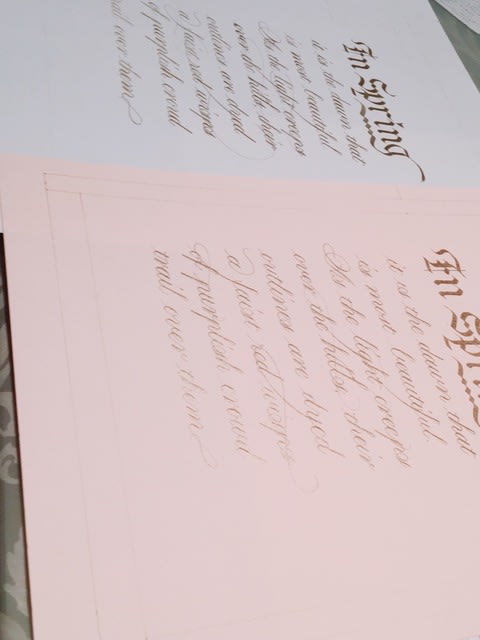 In Spring
it is the dawn that
is most beautiful
As the light creeps
over the hills, their
outlines are dyed
a faint red wisps
of purplish croud
over them
In Spri
it is the dawn that
is most beautiful.
As the light creeps
over the hills, their
outlines are dyed
a faint red wisps
of purplish croud
trail over them